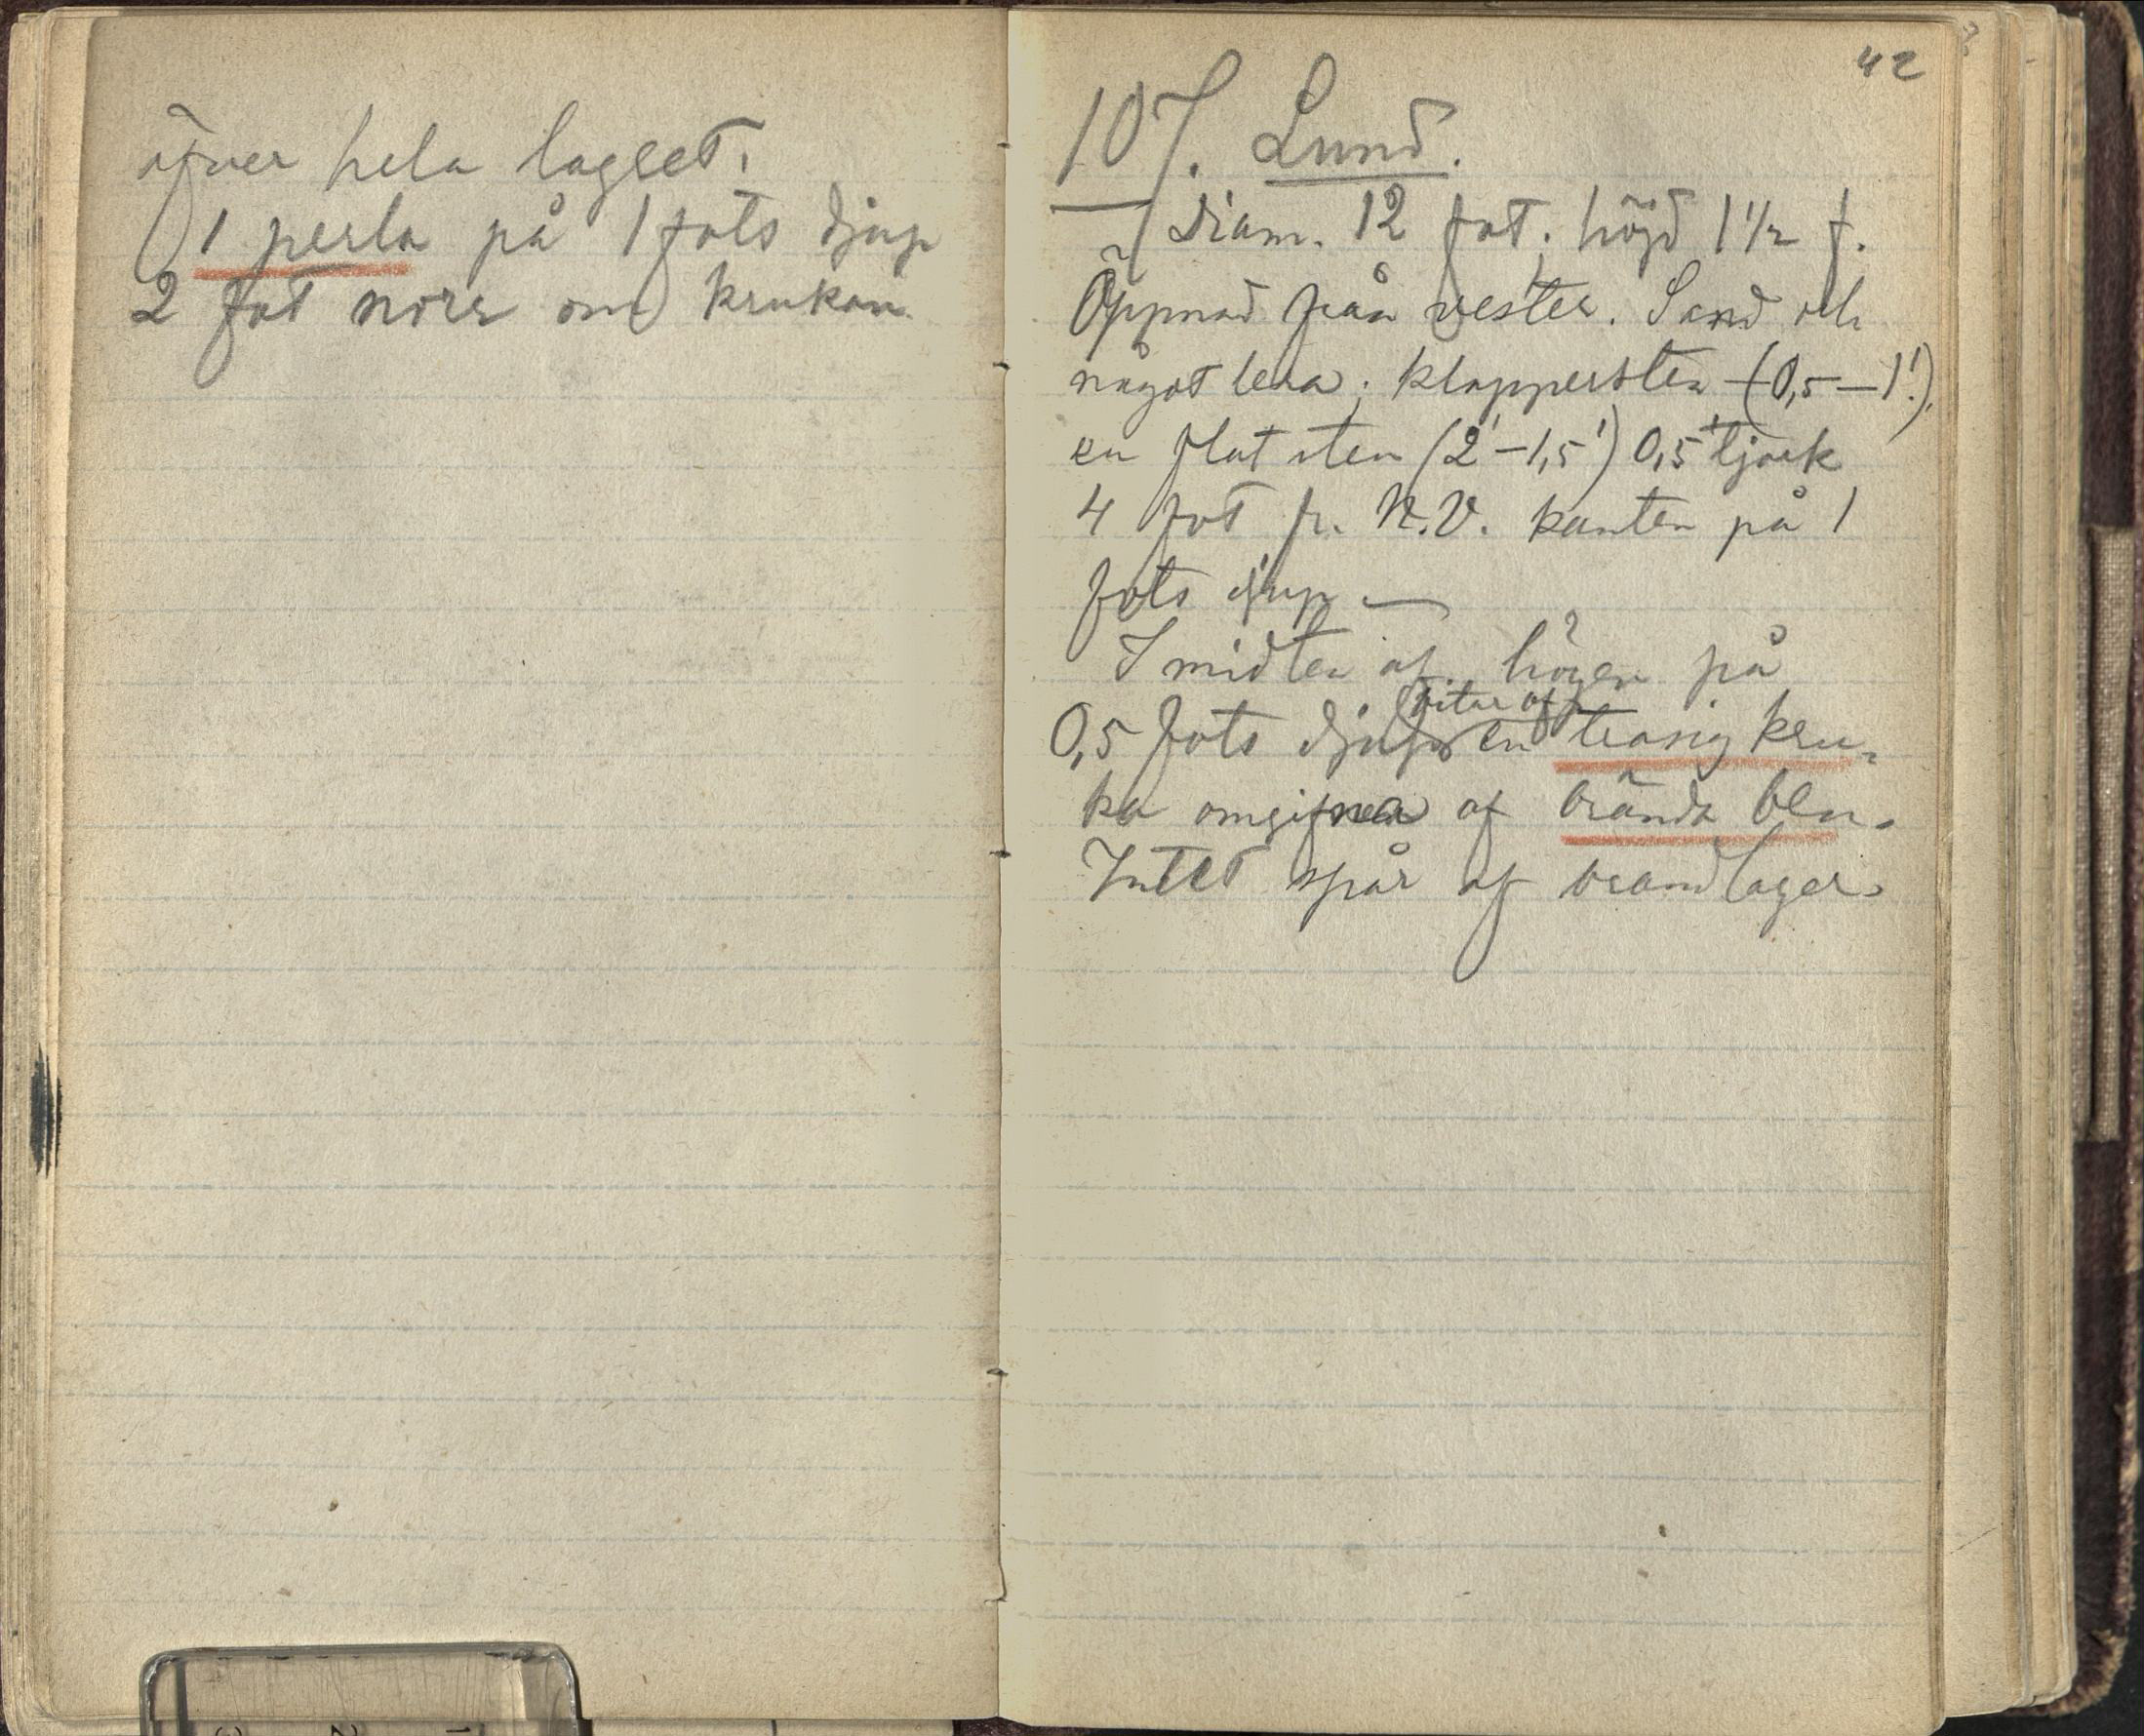 öfver hela lagret.
1 perla på 1 fots djup
2 fot norr om krukan.
42
107. Lund.
Diam. 12 fot; höjd 1 1/2 f.
Öppnad från vester. Sand och
något lera; klappersten (0,5–1').
en flat sten (2'–1,5') 0,5' tjock
4 fot fr. N.V. kanten på 1
fots djup —
I midten af högen på
bitar af
0,5 fots djup en trasig kru-
ka omgifna af brända ben.
Intet spår af brandlager.
3 2 1